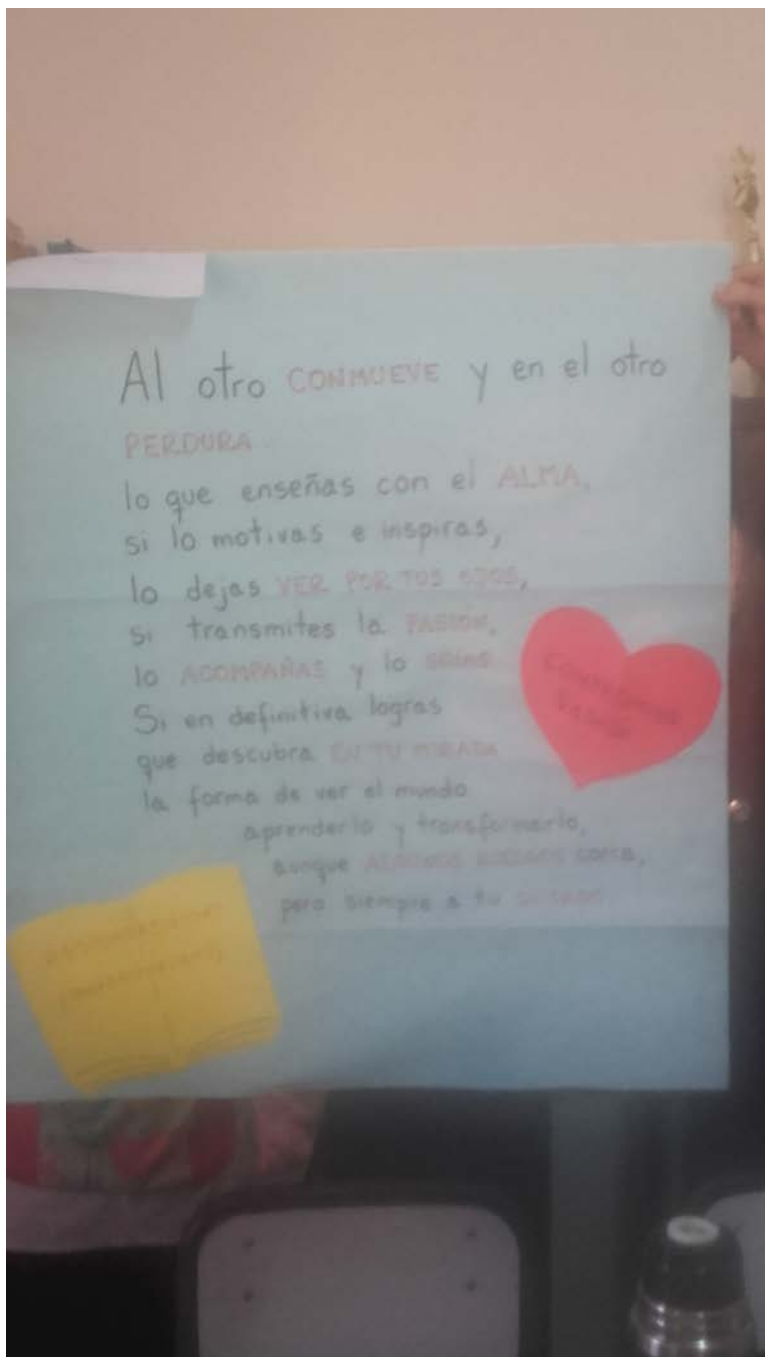 Al otro CONMUEVE y en el otro
PERDURA
lo que enseñas con el ALMA,
si lo motivas e inspiras,
lo dejas VER POR TUS OJOS,
si transmites la PASIÓN,
lo ACOMPAÑAS y lo GUÍAS
Si en definitiva logras
que descubra EN TU MIRADA
la forma de ver el mundo
aprenderlo y transformarlo,
aunque cerca,
pero siempre a tu